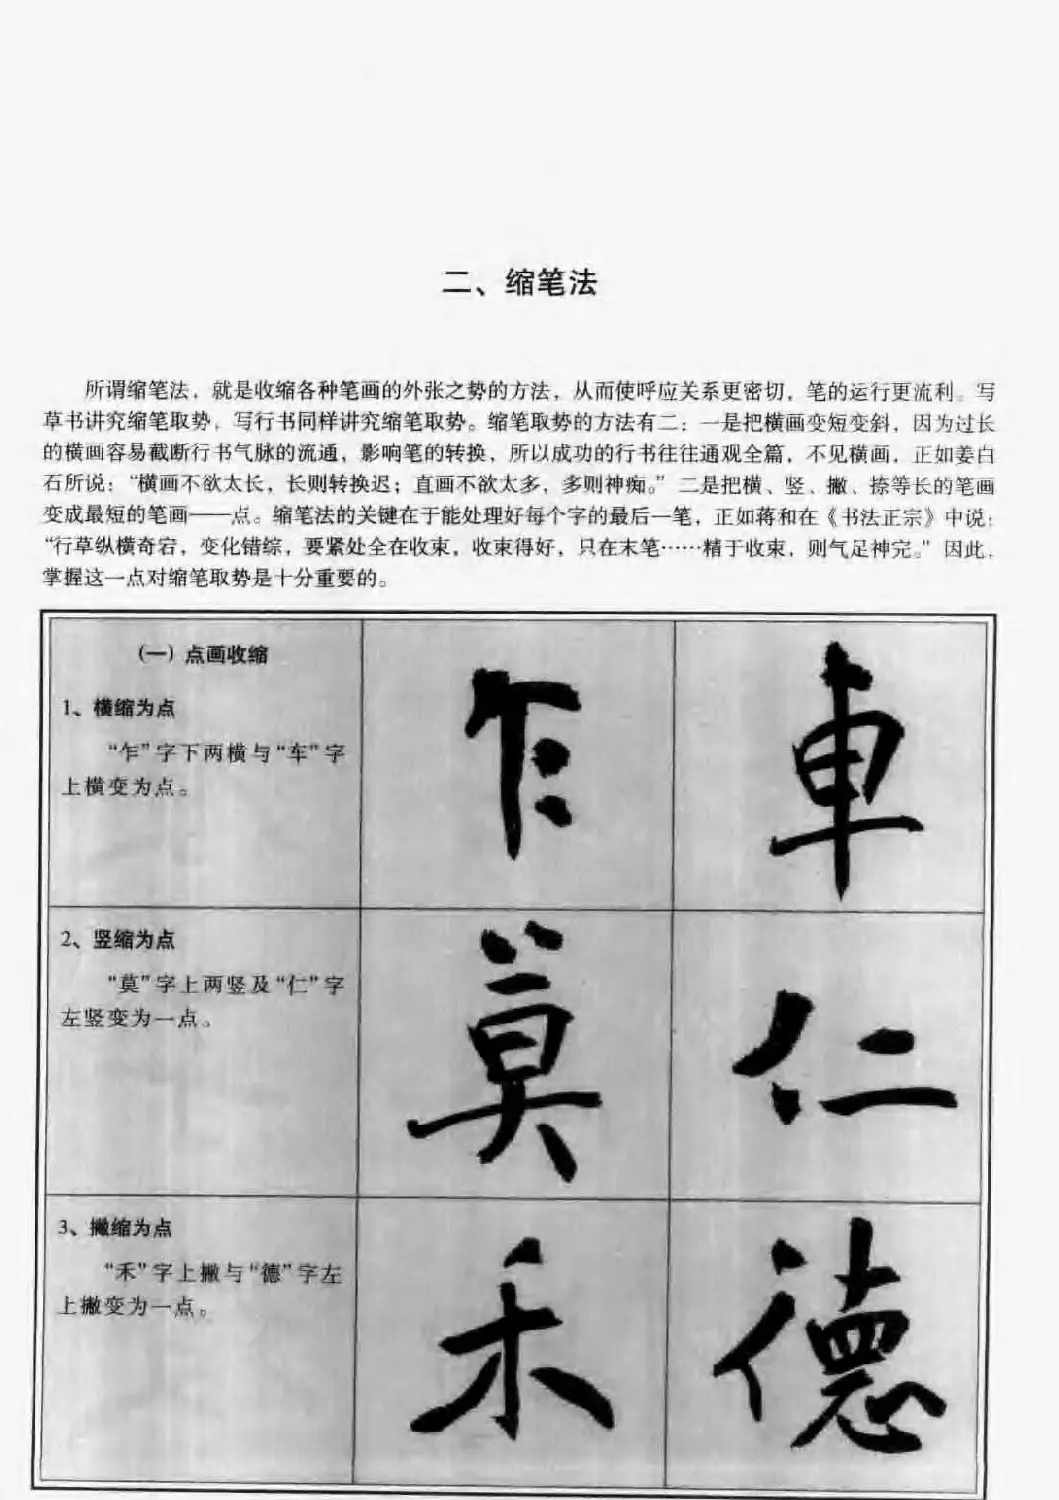 二、缩笔法
所谓缩笔法，就是收缩各种笔画的外张之势的方法，从而使呼应关系更密切，笔的运行更流利。写
草书讲究缩笔取势，写行书同样讲究缩笔取势。缩笔取势的方法有二：一是把横画变短变斜，因为过长
的横画容易截断行书气脉的流通，影响笔的转换，所以成功的行书往往通观全篇，不见横画，正如姜白
石所说：“横画不欲太长，长则转换迟；直画不欲太多，多则神痴。”二是把横、竖、撇、捺等长的笔画
变成最短的笔画——点。缩笔法的关键在于能处理好每个字的最后一笔，正如蒋和在《书法正宗》中说：
“行草纵横奇宕，变化错综，要紧处全在收束，收束得好，只在末笔……精于收束，则气足神完。”因此，
掌握这一点对缩笔取势是十分重要的。
（一）点画收缩
1、横缩为点
“乍”字下两横与“车”字
上横变为点。
乍
車
2、竖缩为点
“莫”字上两竖及“仁”字
左竖变为一点。
莫
仁
3、撇缩为点
“禾”字上撇与“德”字左
上撇变为一点。
禾
德